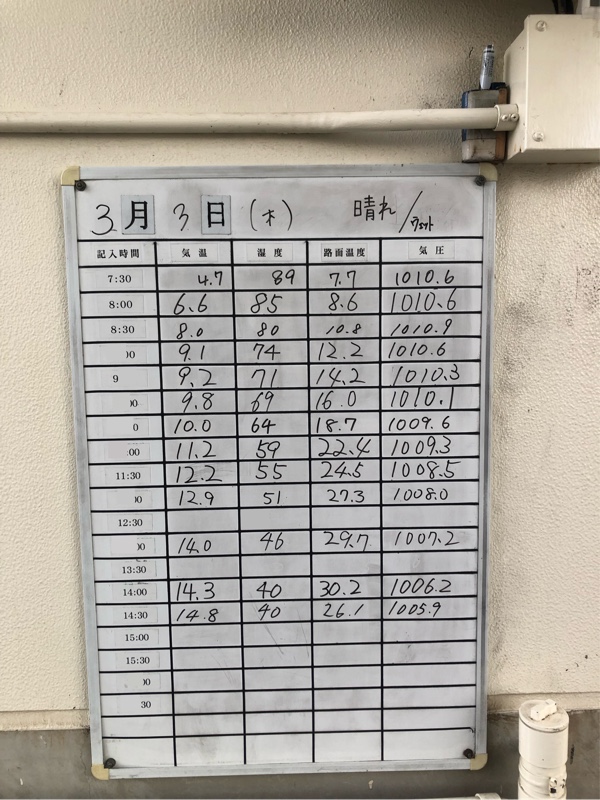 3月 3日 (木) 晴れ/ウェット
記入時間 気温 湿度 路面温度 気圧
7:30 4.7 89 7.7 1010.6
8:00 6.6 85 8.6 1010.6
8:30 8.0 80 10.8 1010.9
00 9.1 74 12.2 1010.6
9 9.2 71 14.2 1010.3
00 9.8 69 16.0 1010.1
0 10.0 64 18.7 1009.6
:00 11.2 59 22.4 1009.3
11:30 12.2 55 24.5 1008.5
00 12.9 51 27.3 1008.0
12:30
00 14.0 46 29.7 1007.2
13:30
14:00 14.3 40 30.2 1006.2
14:30 14.8 40 26.1 1005.9
15:00
15:30
00
30